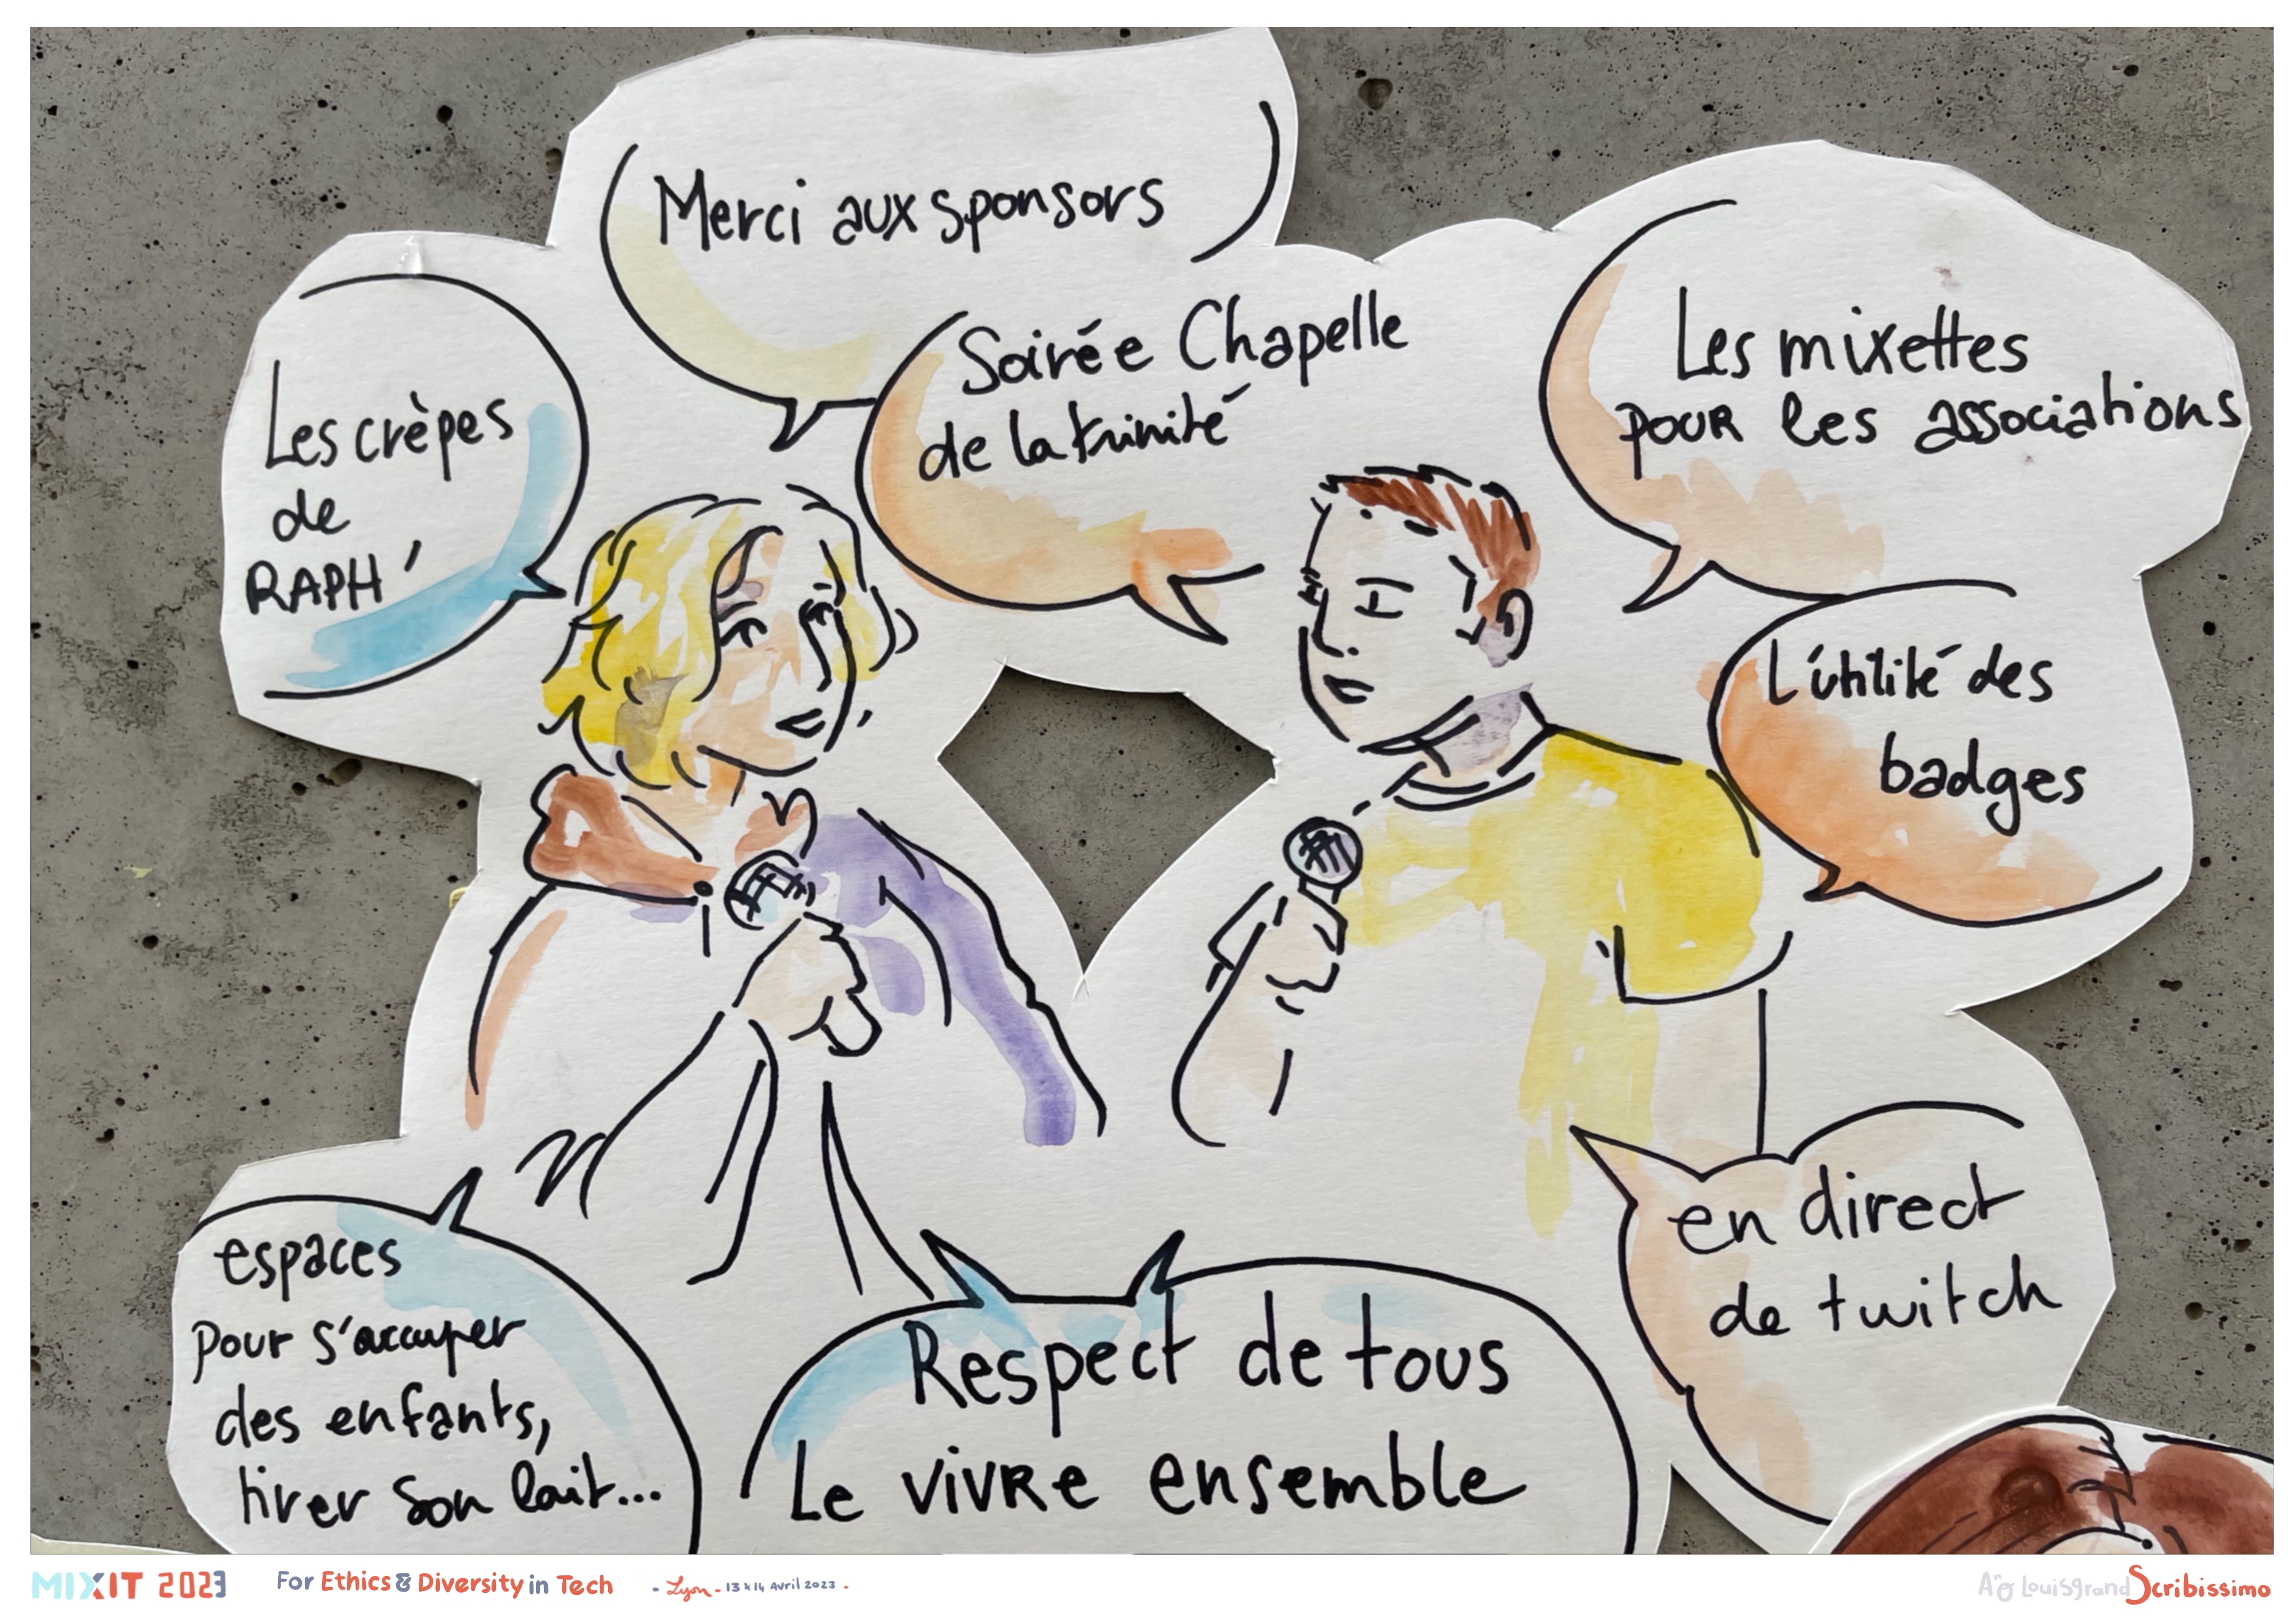 Merci aux sponsors
Les crèpes
de
RAPH'
Soirée Chapelle
de la trinité
Les mixettes
pour les associations
L'utilité des
badges
espaces
pour s'occuper
des enfants,
tirer son lait...
Respect de tous
Le vivre ensemble
en direct
de twitch
MIXIT 2023 For Ethics & Diversity in Tech - Lyon - 13 & 14 Avril 2023 -
Louisgrand Scribissimo